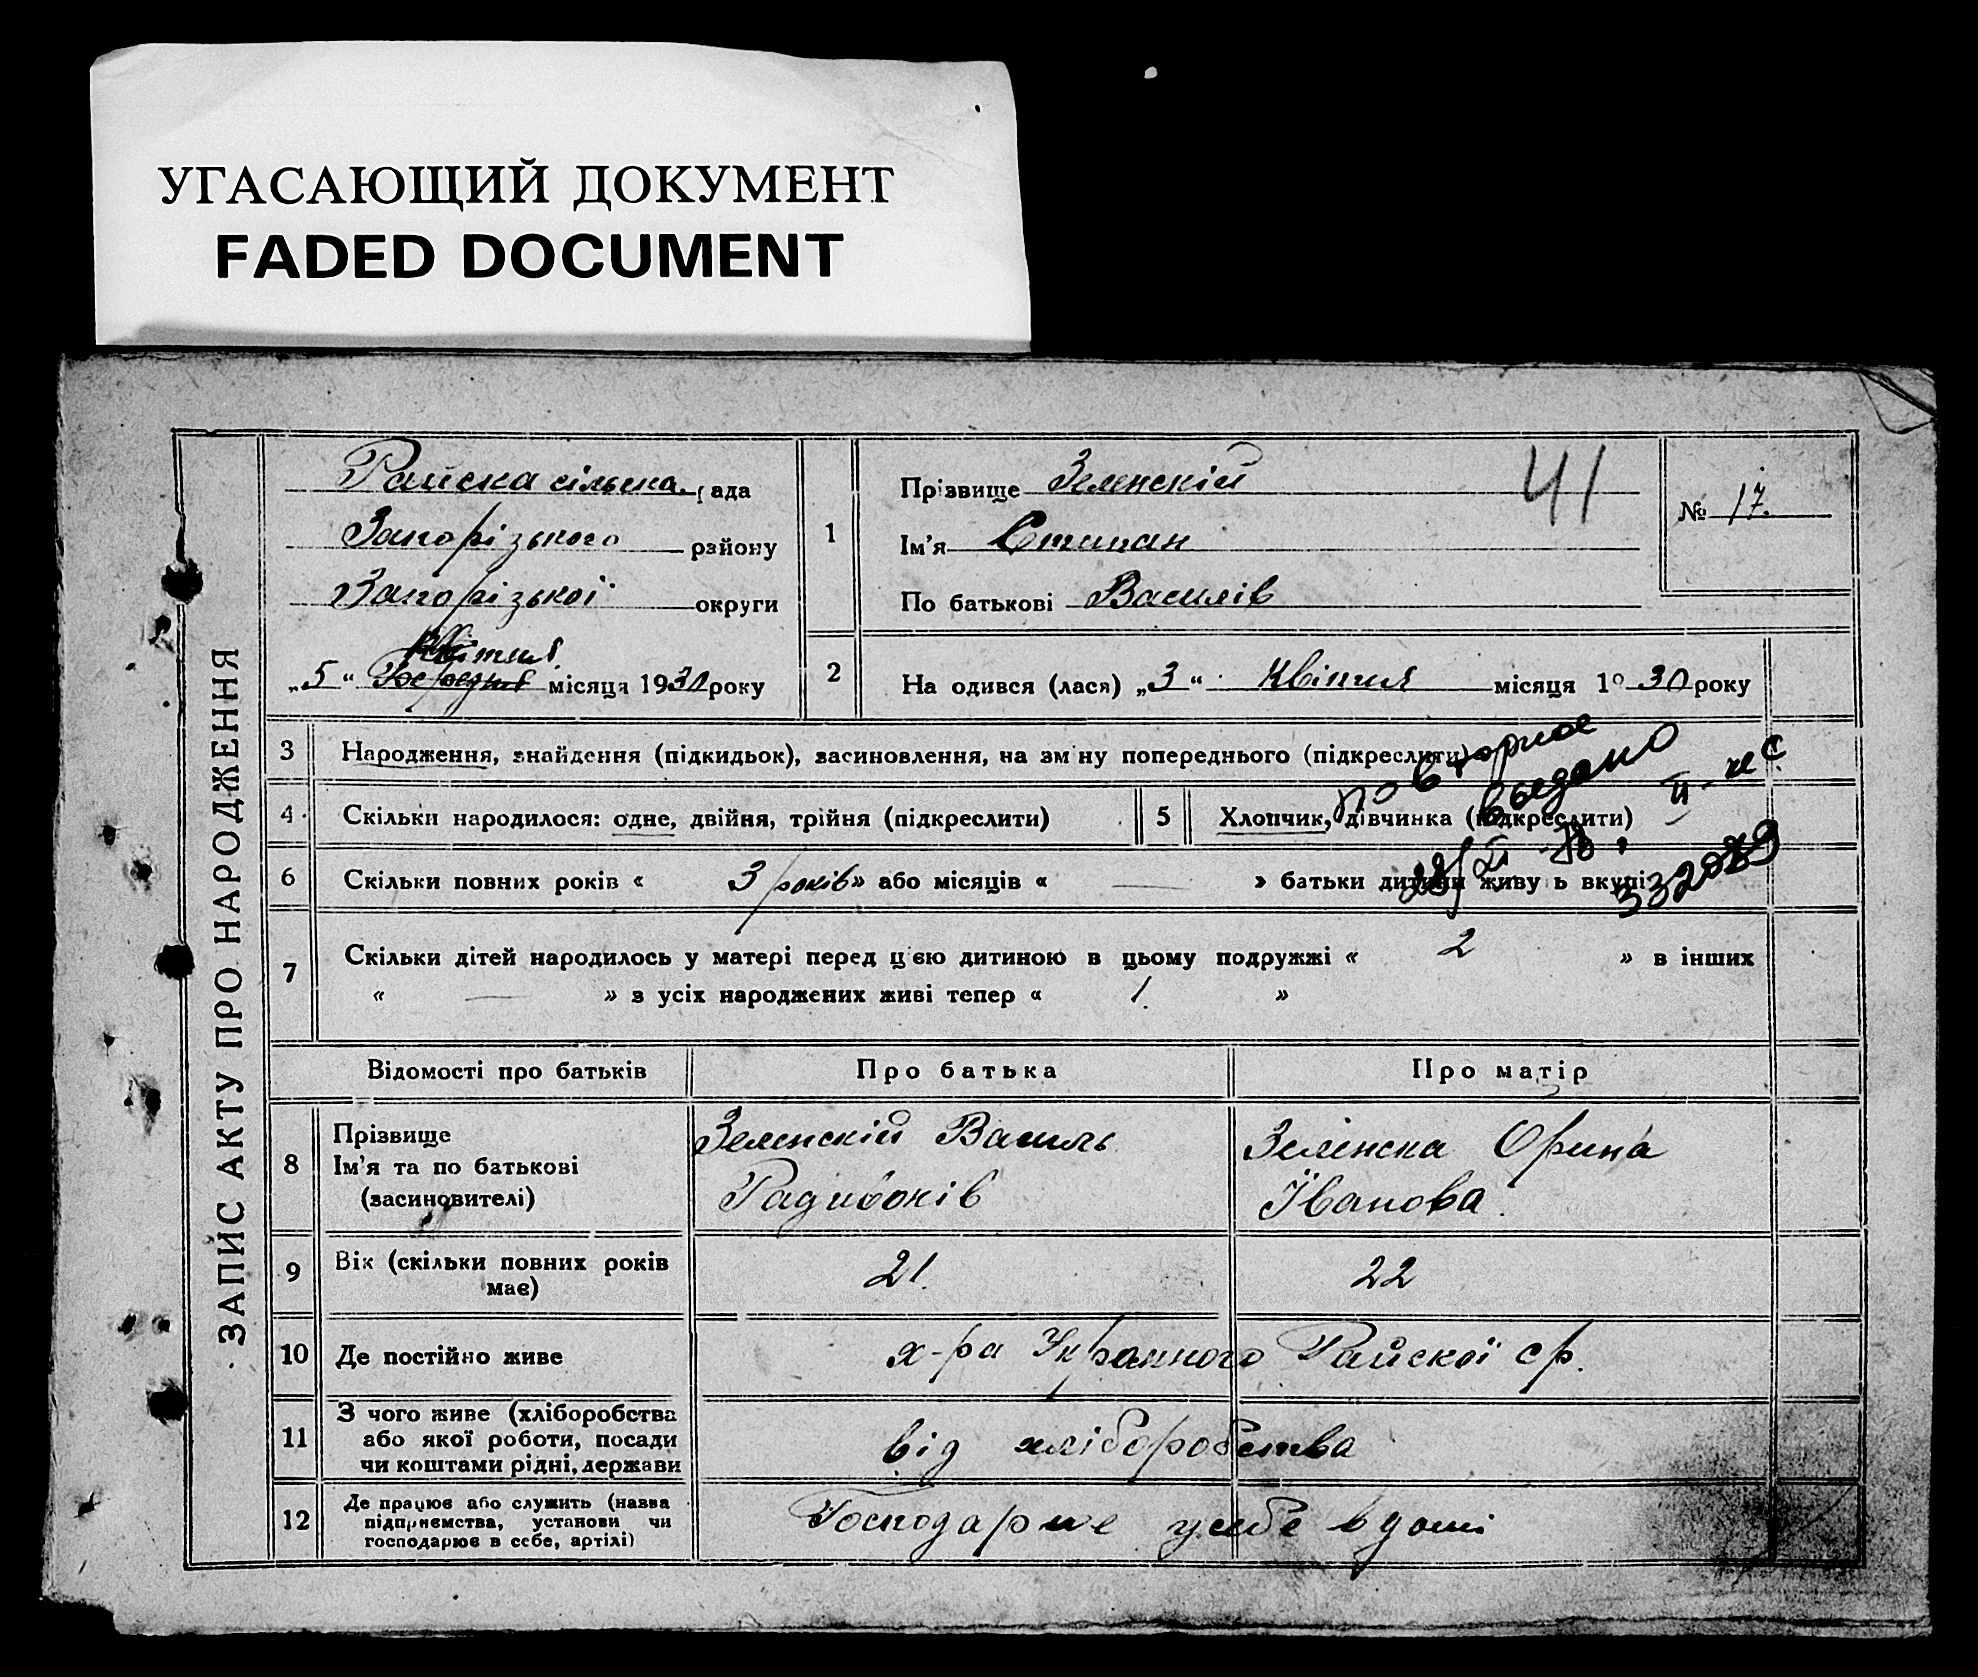 УГАСАЮЩИЙ ДОКУМЕНТ
FADED DOCUMENT
ЗАПИС АКТУ ПРО НАРОДЖЕННЯ
Райска сільська рада
Запорізького району
Запорізької округи
Квітня
„5“ Березня місяця 1930 року
1
Прізвище Зеленскій
Ім'я Степан
По батькові Василів
41
№ 17.
2
На одився (лася) „3“ Квітня місяця 1930 року
3 Народження, знайдення (підкидьок), засиновлення, на зміну попереднього (підкреслити)
повторное
выдано
4 Скільки народилося: одне, двійня, трійня (підкреслити)
5 Хлопчик, дівчинка (підкреслити)
II-ЖС
332089
6 Скільки повних років « 3 років » або місяців « — » батьки дитини живуть вкупі
7 Скільки дітей народилось у матері перед цією дитиною в цьому подружжі « 2 » в інших
« — » з усіх народжених живі тепер « 1. »
Відомості про батьків Про батька Про матір
8 Прізвище
Ім'я та по батькові
(засиновителі)
Зеленскій Василь
Радивонів
Зеленска Орина
Іванова.
9 Вік (скільки повних років
має)
21.
22
10 Де постійно живе
х-ра Украінного Райскої ср.
11 З чого живе (хліборобства
або якої роботи, посади
чи коштами рідні, держави
від хліборобства
12 Де працює або служить (назва
підприємства, установи чи
господарює в себе, артілі)
Господарює у себе вдома